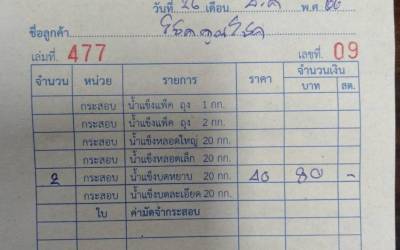 วันที่ 26 เดือน มี.ค พ.ศ 66
ชื่อลูกค้า โชคคูณโชค
เล่มที่ 477 เลขที่ 09
จำนวน หน่วย รายการ ราคา จำนวนเงิน
บาท สต.
กระสอบ น้ำแข็งแพ็ค ถุง 1 กก.
กระสอบ น้ำแข็งแพ็ค ถุง 2 กก.
กระสอบ น้ำแข็งหลอดใหญ่ 20 กก.
กระสอบ น้ำแข็งหลอดเล็ก 20 กก.
2 กระสอบ น้ำแข็งบดหยาบ 20 กก. 40 80 -
กระสอบ น้ำแข็งบดละเอียด 20 กก.
ใบ ค่ามัดจำกระสอบ